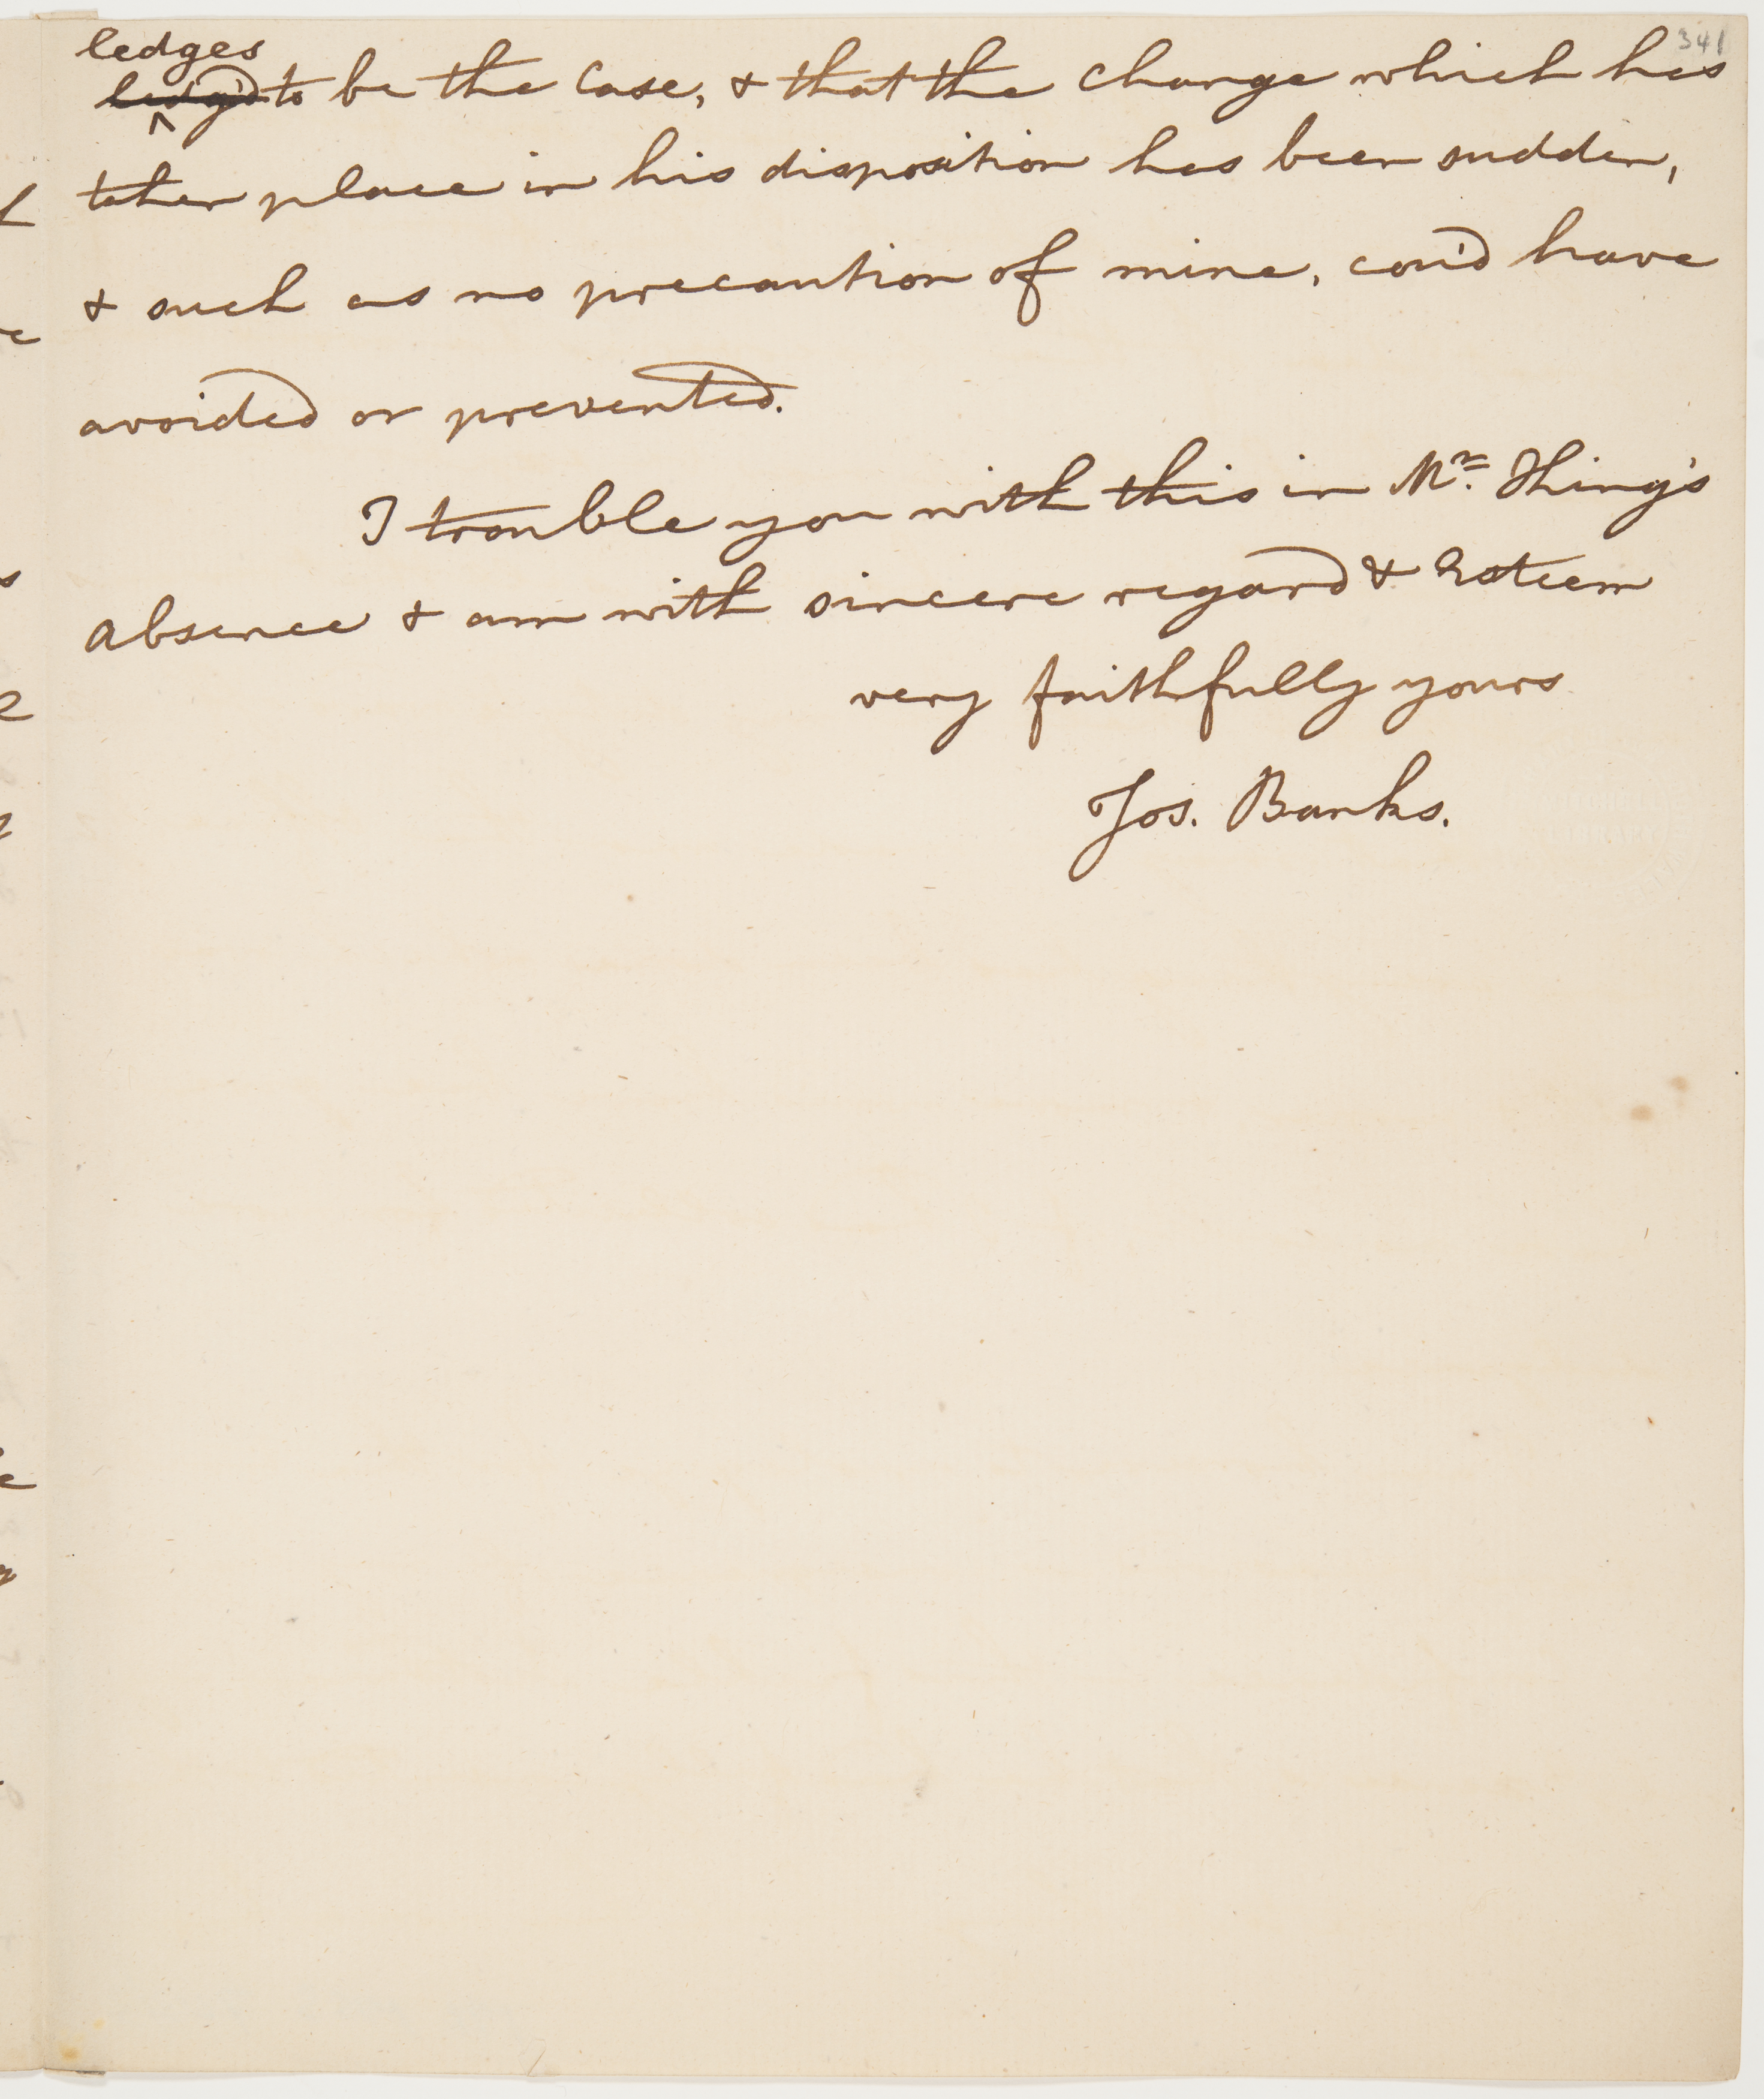 341
ledges
ledg'd to be the Case, & that the change which has
taken place in his disposition has been sudden,
& such as no precaution of mine, cou'd have
avoided or prevented.
I trouble you with this in Mr. Thing's
absence & am with sincere regard & Esteem
very faithfully yours
Jos. Banks.